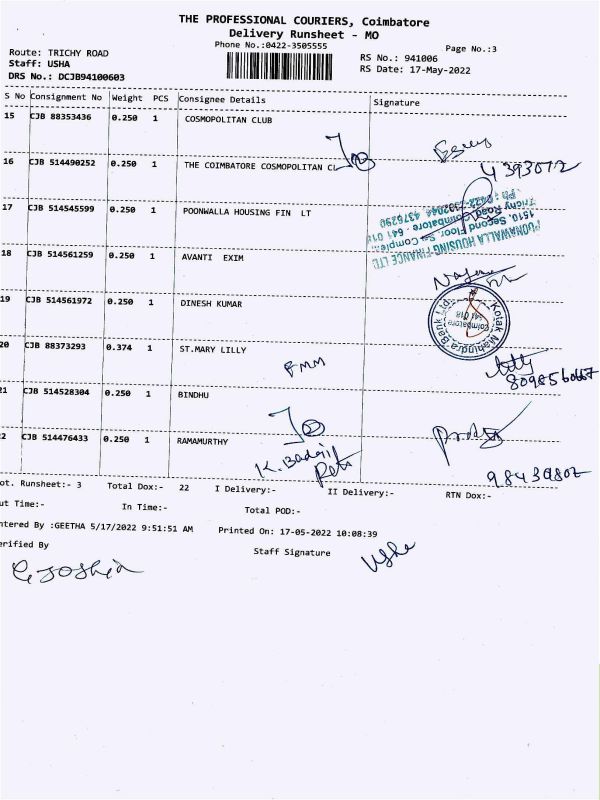 THE PROFESSIONAL COURIERS, Coimbatore
Delivery Runsheet - MO
Phone No.:0422-3505555
Page No.:3
Route: TRICHY ROAD
RS No.: 941006
Staff: USHA
RS Date: 17-May-2022
DRS No.: DCJB94100603
S No Consignment No Weight PCS Consignee Details Signature
15 CJB 88353436 0.250 1 COSMOPOLITAN CLUB
16 CJB 514490252 0.250 1 THE COIMBATORE COSMOPOLITAN CL
17 CJB 514545599 0.250 1 POONWALLA HOUSING FIN LT
POONAWALLA HOUSING FINANCE LTD
1510, Second Floor,
Trichy Road, Coimbatore - 641 018
18 CJB 514561259 0.250 1 AVANTI EXIM
19 CJB 514561972 0.250 1 DINESH KUMAR
Kotak Mahindra Bank Ltd.
Coimbatore
641 018
20 CJB 88373293 0.374 1 ST.MARY LILLY
21 CJB 514528304 0.250 1 BINDHU
22 CJB 514476433 0.250 1 RAMAMURTHY
ot. Runsheet:- 3 Total Dox:- 22 I Delivery:- II Delivery:- RTN Dox:-
ut Time:- In Time:- Total POD:-
ntered By :GEETHA 5/17/2022 9:51:51 AM Printed On: 17-05-2022 10:08:39
erified By Staff Signature Usha